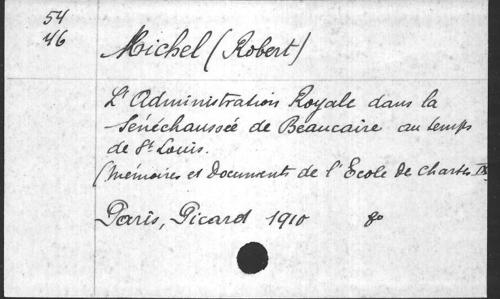 54
46
Michel (Robert)
L'Administration Royale dans la
Sénéchaussée de Beaucaire au temps
de St Louis.
(Mémoires et Documents de l'Ecole de Chartes IX)
Paris, Picard 1910 8o